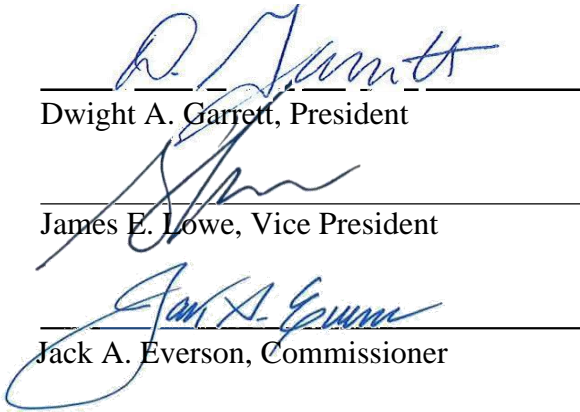 D. Garritt
Dwight A. Garrett, President
James E. Lowe, Vice President
Jack A. Everson
Jack A. Everson, Commissioner